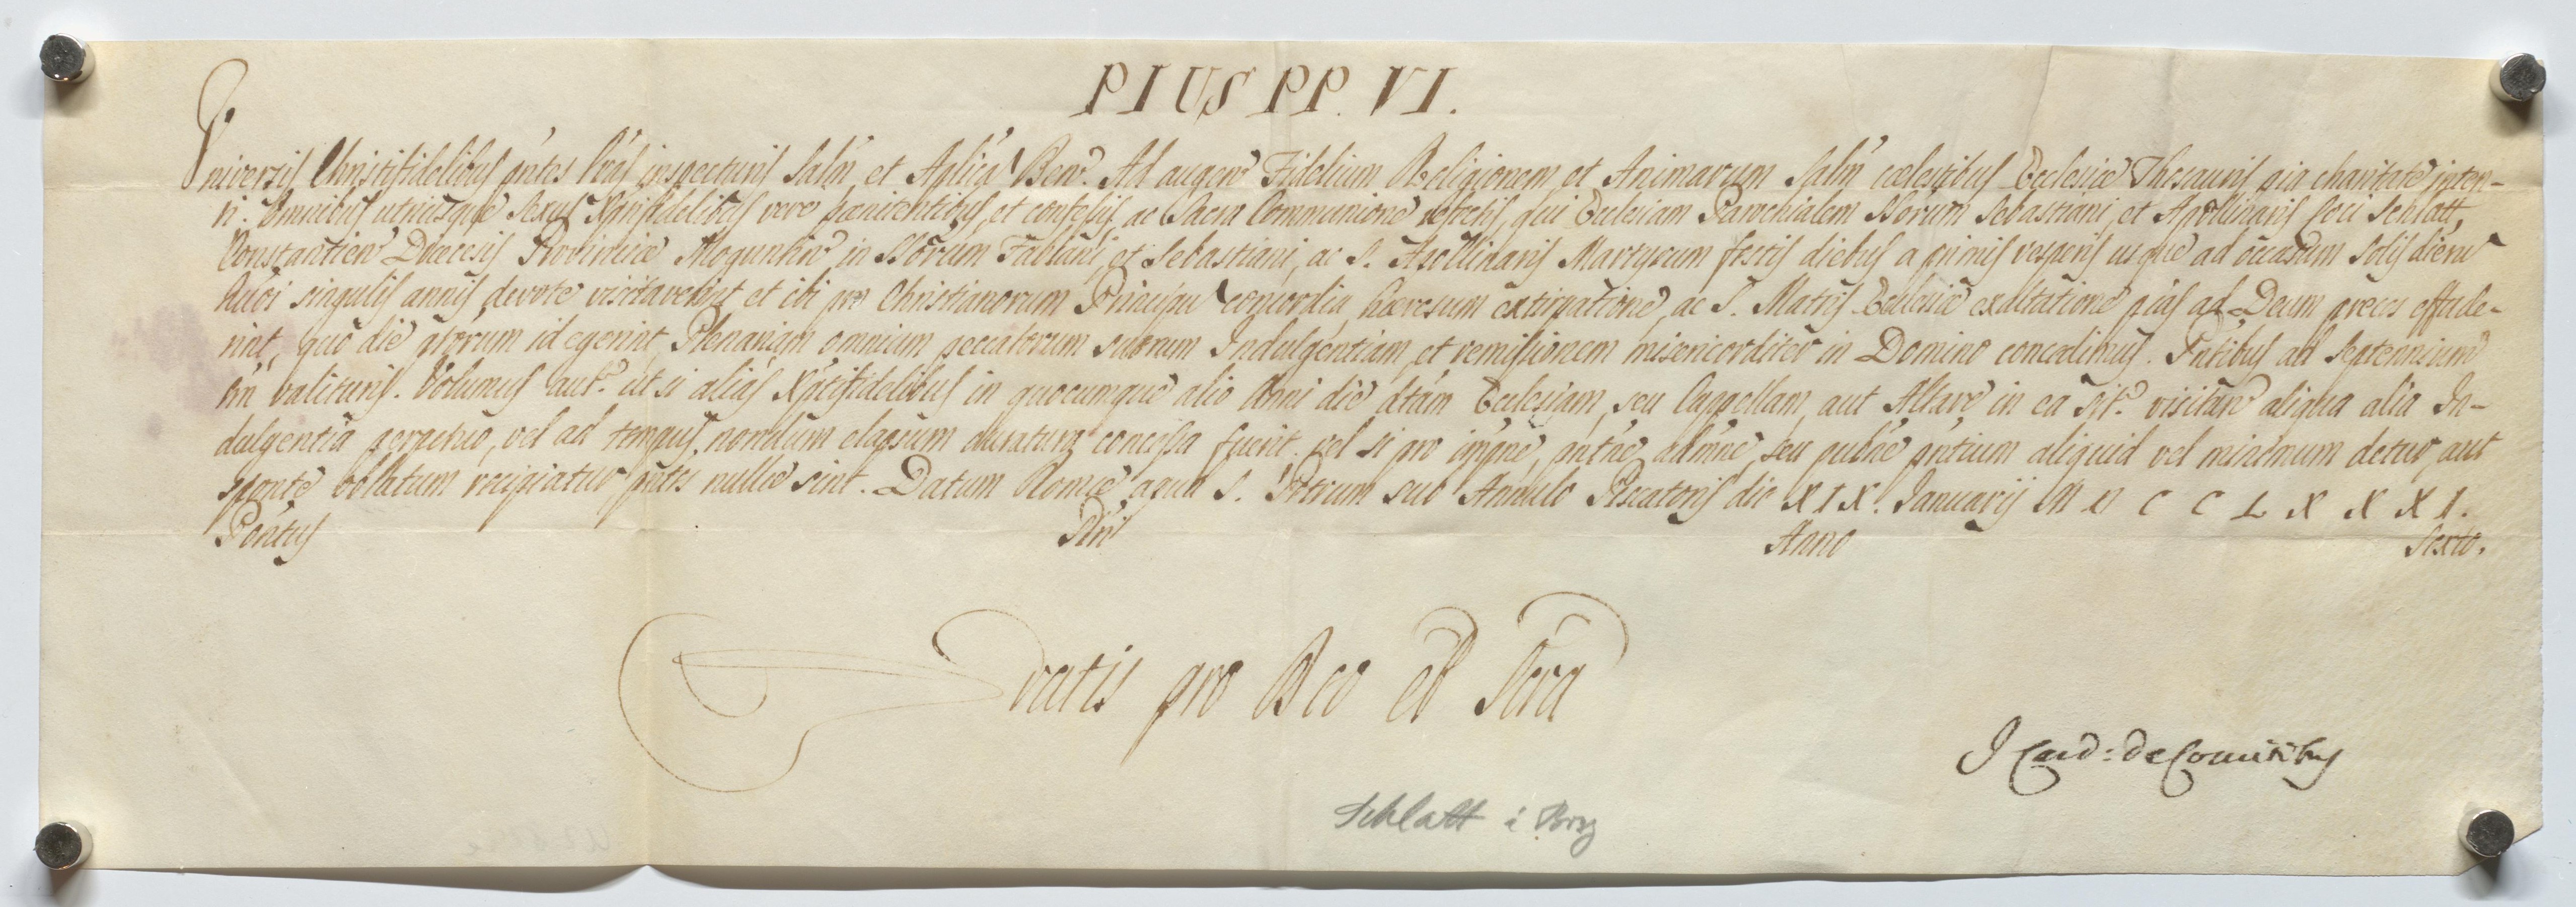 PIUS PP. VI.
Universis Christifidelibus pñtes Lras inspecturis Salm̃ et Aplicã Ben. Ad augen Fidelium Religionem et Animarum Salm̃ cælestibus Ecclesiæ Thesauris pia charitate inten-
ti. Omnibus utriusque Sexus Xpñifidelibus vere pænitentibus, et confessis, ac Sacra Communione refectis, qui Ecclesiam Parochialem Ssorum Sebastiani, et Apollinaris Loci Schlatt,
Constantien Diœcesis Provinciæ Moguntin in Ssorum Fabiani, et Sebastiani, ac S. Apollinaris Martyrum festis diebus a primis vesperis usque ad occasum Solis dierum
hmõi singulis annis devote visitaverint et ibi pro Christianorum Principu concordia, hæresum extirpatione, ac S. Matris Ecclesiæ exaltatione pias ad Deum preces effude-
rint, quo die ptorum id egerint, Plenariam omnium peccatorum suorum Indulgentiam, et remissionem misericorditer in Domino concedimus. Pñtibus ad Septennium
tñ valituris. Volumus aut. ut si alias Xptifidelibus in quocumque alio Anni die dtam Ecclesiam, seu Cappellam, aut Altare in ea sit. visitan aliqua alia In-
dulgentia perpetuo, vel ad tempus nondum elapsum duratura concessa fuerit. vel si pro impne, pntne, admne, seu pubne pntium aliquid vel minimum detur, aut
sponte oblatum recipiatur, pntes nullæ sint. Datum Romæ apud S. Petrum sub Annulo Piscatoris die XIX. Januarij MDCCLXXXI.
Pontus Nri Anno Sexto.
Gratis pro Deo et Scra
J Card: de Comitibus
Schlatt i Brsg